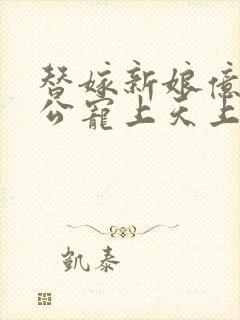 替嫁新娘億
公寵上天上
凱泰